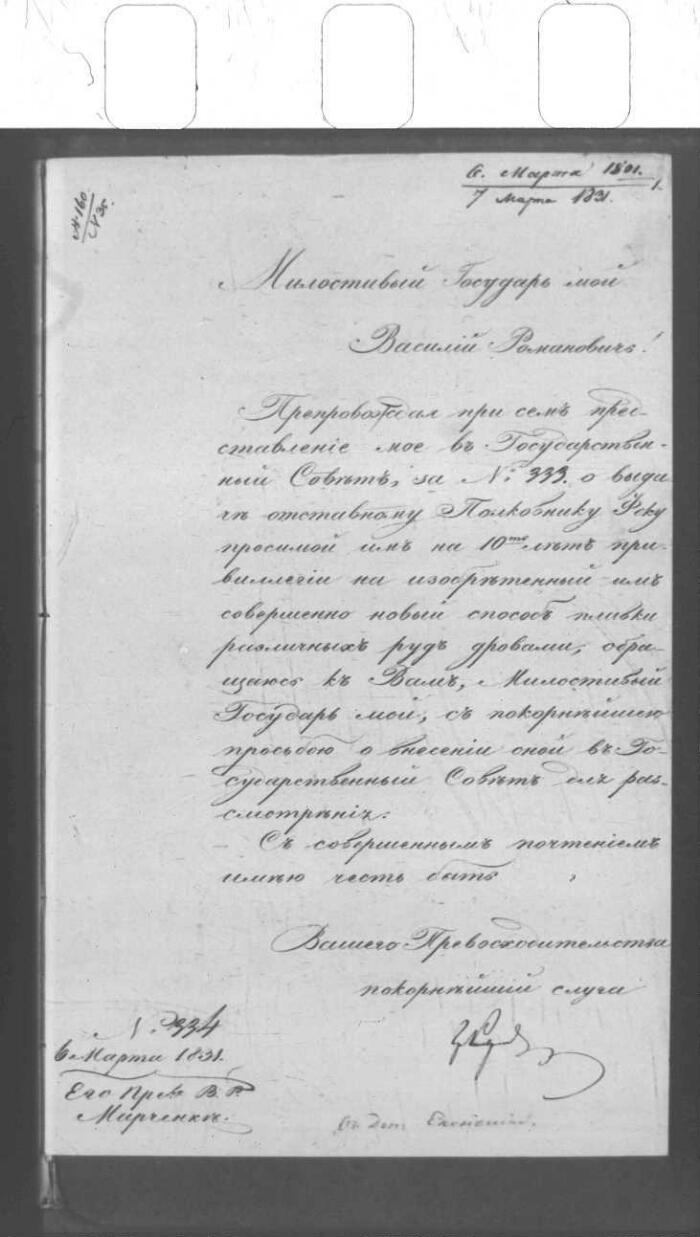 6. Марта 1831.
7 Марта 1831.
№ 160
№ 35.
Милостивый Государь мой
Василій Романовичъ!
Препровождая при семъ пред-
ставленіе мое въ Государствен-
ный Совѣтъ, за №: 333. о выда
чѣ отставному Полковнику Фоку
просимой имъ на 10ть лѣтъ при-
виллегіи на изобрѣтенный имъ
совершенно новый способъ плавки
различныхъ рудъ дровами, обра-
щаюсь къ Вамъ, Милостивый
Государь мой, съ покорнѣйшею
просьбою о внесеніи оной въ Го-
сударственный Совѣтъ для раз-
смотрѣнія.
Съ совершеннымъ почтеніемъ
имѣю честь быть
Вашего Превосходительства
покорнѣйшій слуга
№ 334
6 Марта 1831.
Его Прев. В. Р.
Марченкѣ.
Деп. Економіи.